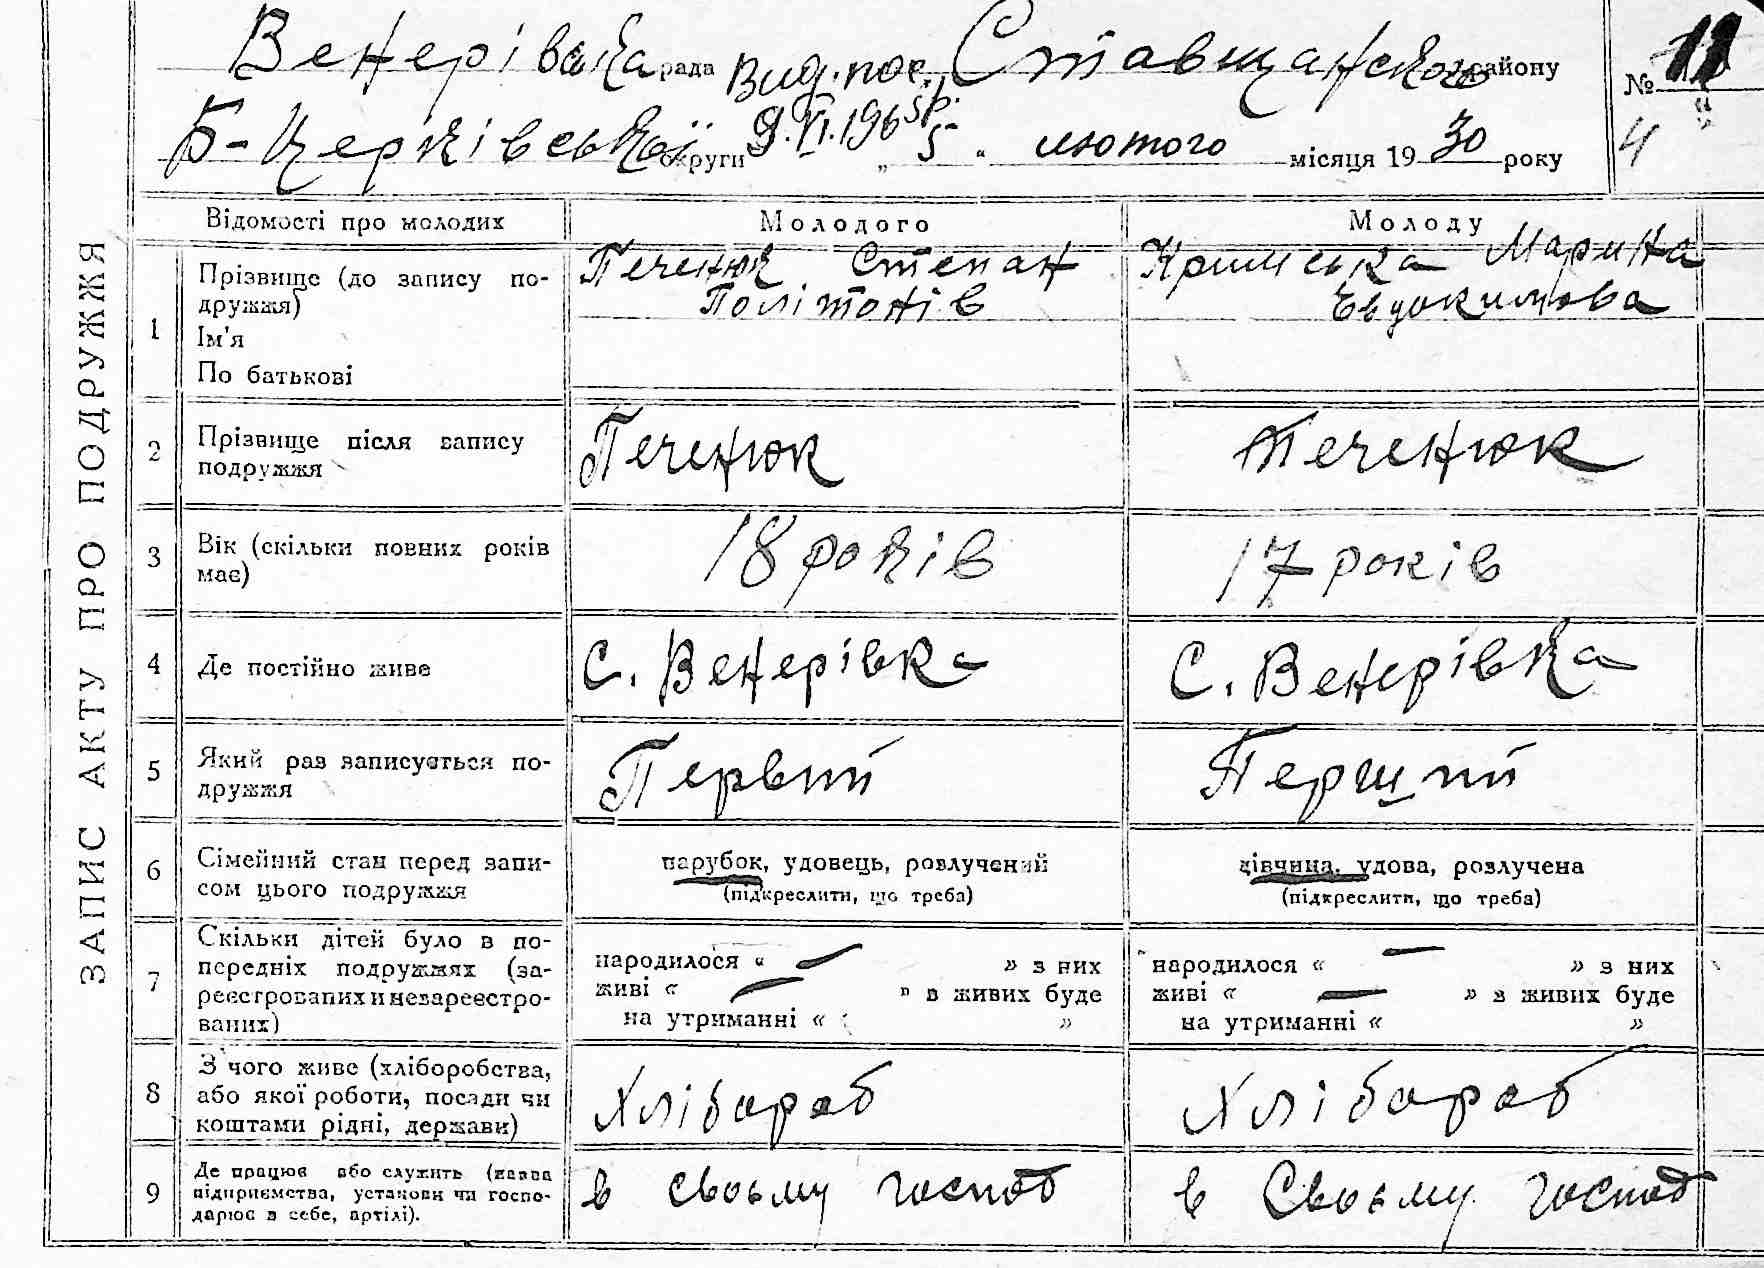 Венерівська рада Вид. пос. Ставищанського району № 11
Б-Церківської округи 9.VI.1965р. „ 5 “ лютого місяця 1930 року 4
ЗАПИС АКТУ ПРО ПОДРУЖЖЯ
Відомості про молодих Молодого Молоду
1 Прізвище (до запису по- Печенюк Степан Кримська Марина
дружжя) Політонів Євдокимова
Ім'я
По батькові
2 Прізвище після запису Печенюк Печенюк
подружжя
3 Вік (скільки повних років 18 років 17 років
має)
4 Де постійно живе С. Венерівка С. Венерівка
5 Який раз записується по- Первий Перший
дружжя
6 Сімейний стан перед запи- парубок, удовець, розлучений дівчина, удова, розлучена
сом цього подружжя (підкреслити, що треба) (підкреслити, що треба)
7 Скільки дітей було в по- народилося « — » з них народилося « — » з них
передніх подружжях (за- живі « — » з живих буде живі « — » з живих буде
реєстрованих и незареєстро- на утриманні « » на утриманні « »
ваних)
8 З чого живе (хліборобства, Хлібороб Хлібороб
або якої роботи, посади чи
коштами рідні, держави)
9 Де працює або служить (назва в своьму господ в Своьму господ
підприємства, установи чи госпо-
дарює в себе, артілі).